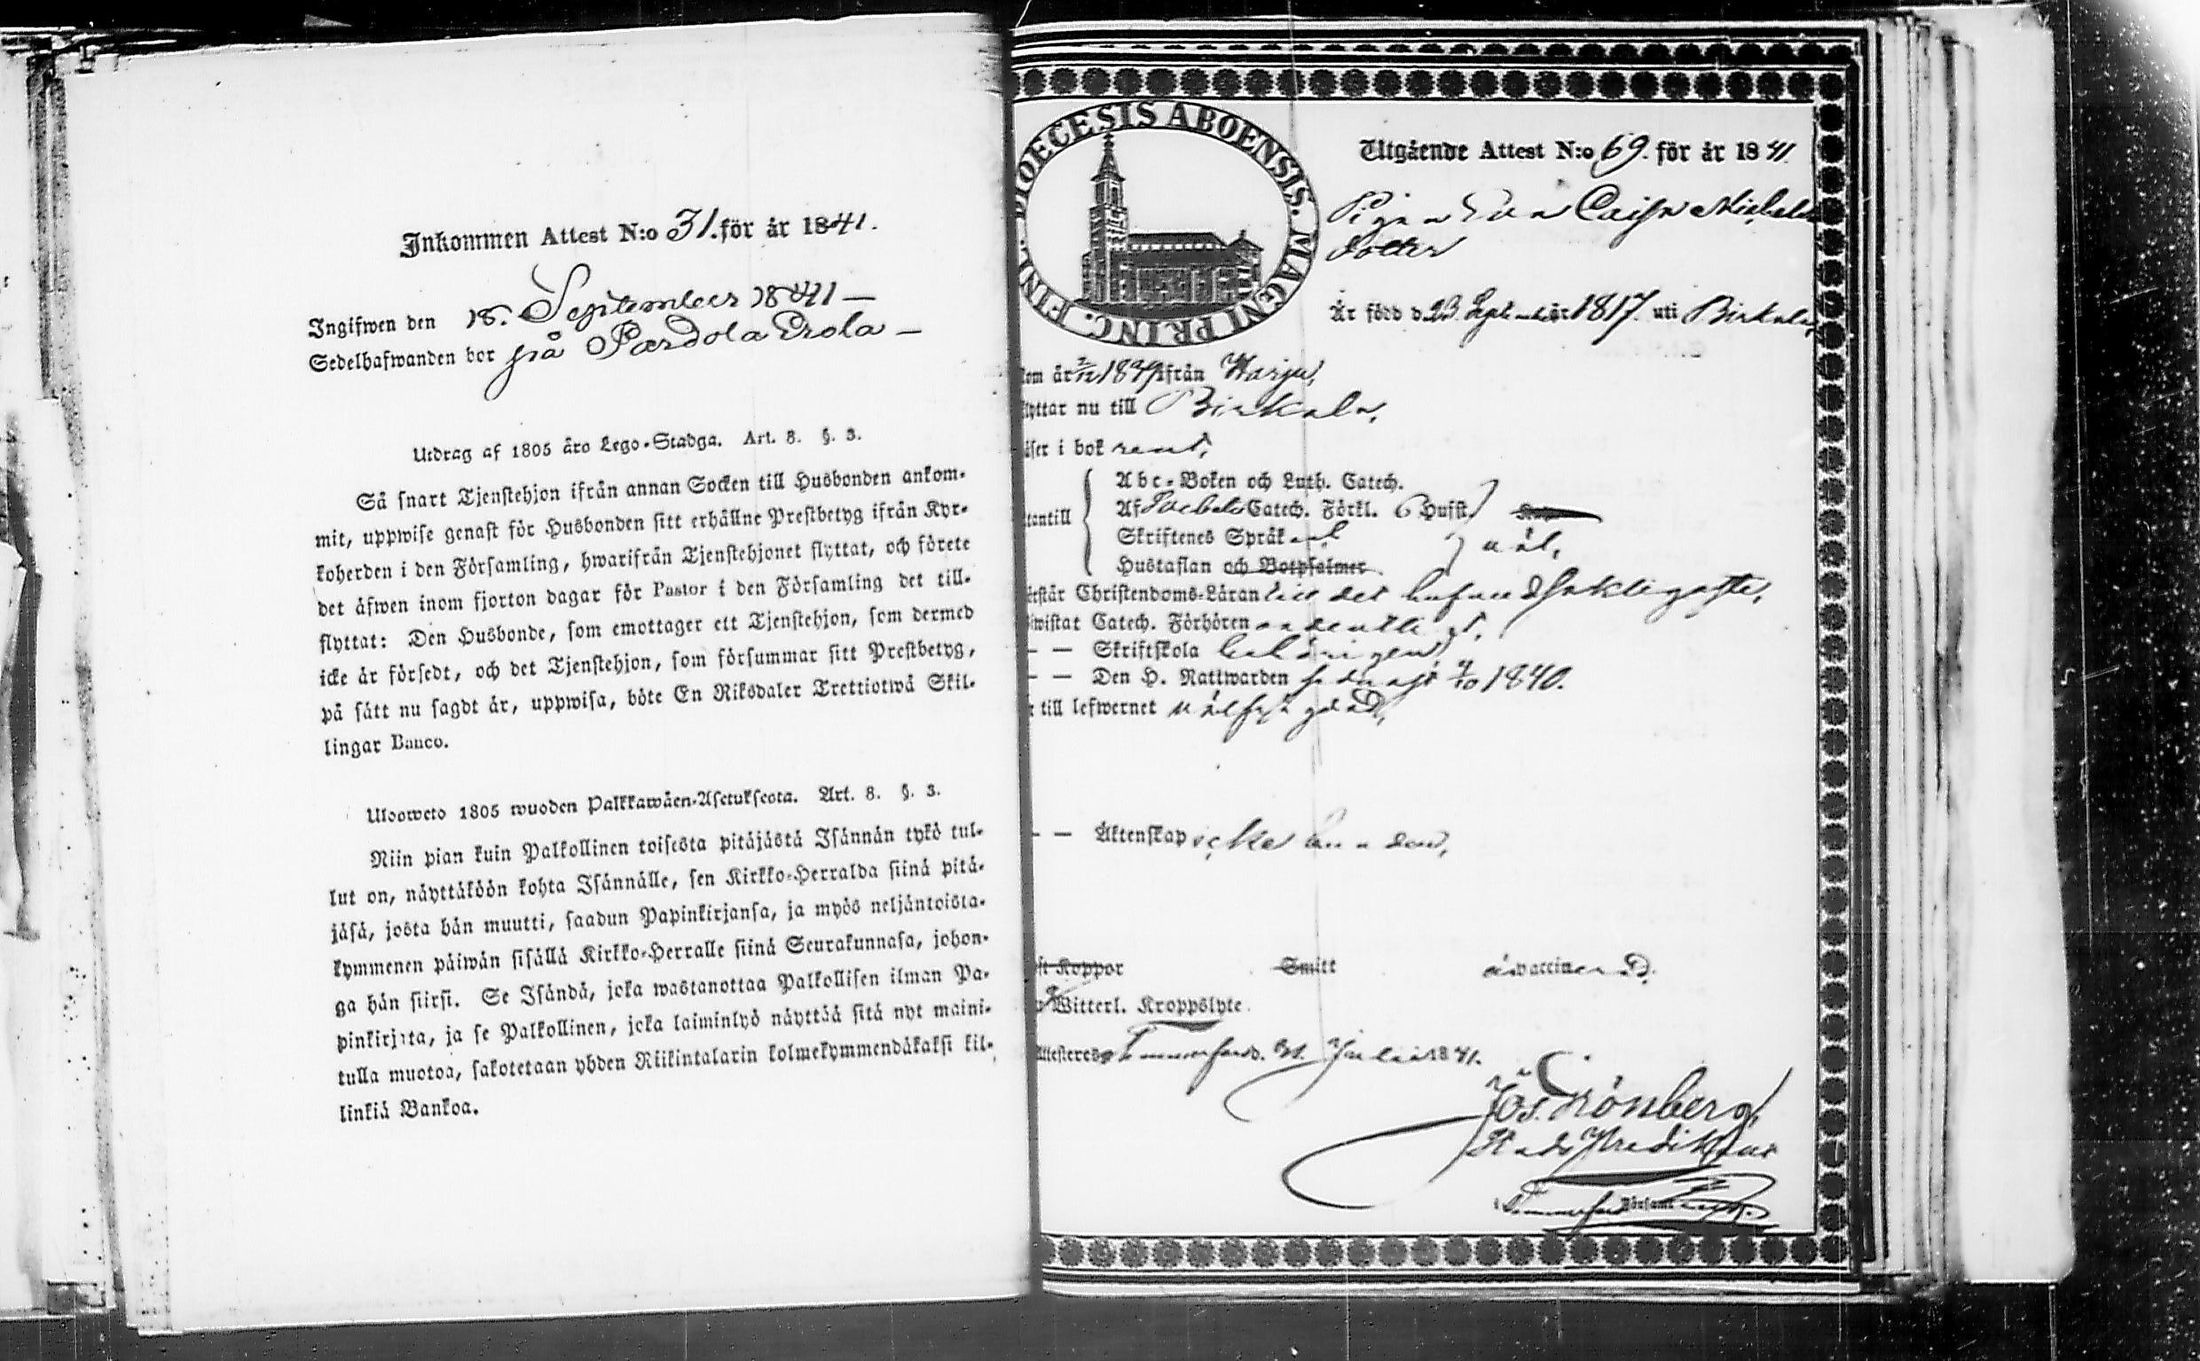 Inkommen Attest N:o 31. för år 1841.
Ingifwen den 18. September 1841 —
Sedelhafwanden bor på Pærdola Erola —
Utdrag af 1805 års Lego-Stadga. Art. 8. §. 3.
Så snart Tjenstehjon ifrån annan Socken till Husbonden ankom-
mit, uppwise genast för Husbonden sitt erhållne Prestbetyg ifrån Kyr-
koherden i den Församling, hwarifrån Tjenstehjonet flyttat, och förete
det åfwen inom fjorton dagar för Pastor i den Församling det till-
flyttat: Den Husbonde, som emottager ett Tjenstehjon, som dermed
icke är försedt, och det Tjenstehjon, som försummar sitt Prestbetyg,
på sätt nu sagdt är, uppwisa, böte En Riksdaler Trettiotwå Skil-
lingar Banco.
Ulosweto 1805 wuoden Palkkawäen-Asetuksesta. Art. 8. §. 3.
Niin pian kuin Palkollinen toisesta pitäjästä Isännän tykö tul-
lut on, näyttäköön kohta Isännälle, sen Kirkko-Herralda siinä pitä-
jäsä, josta hän muutti, saadun Papinkirjansa, ja myös neljäntoista-
kymmenen päiwän sisällä Kirkko-Herralle siinä Seurakunnasa, johon-
ga hän siirsi. Se Isändä, joka wastanottaa Palkollisen ilman Pa-
pinkirjata, ja se Palkollinen, joka laiminlyö näyttää sitä nyt maini-
tulla muotoa, sakotetaan yhden Riikintalarin kolmekymmendäkaksi kil-
linkiä Bankoa.
DIOECESIS ABOENSIS. MAGNI PRINC. FINL.
Utgående Attest N:o 69. för år 1841.
Pigan Eva Caisa Michels
dotter
Är född d. 23 September 1817. uti Birkala,
kom år 1839 ifrån Harju,
flyttar nu till Birkala,
läser i bok rent,
Abc-Boken och Luth. Catech.
utantill Af Svebelii Catech. Förkl. 6 Hufst.
Skriftenes Språk
Hustaflan och Botpsalmer wäl,
förstår Christendoms-Läran till det hufvudsakligaste,
biwistat Catech. Förhören ordentligt,
— — Skriftskola behörigen,
— — Den H. Nattwarden sednast 4/10 1840.
är till lefwernet välfrägdad,
— — Äktenskap icke bunden,
haft Koppor Smitt är vaccinerad.
Witterl. Kroppslyte.
Attesteres Tammerfors d. 31 Julii 1841.
Jos. Grönberg,
Stads Predikant
i Tammerfors Församl.